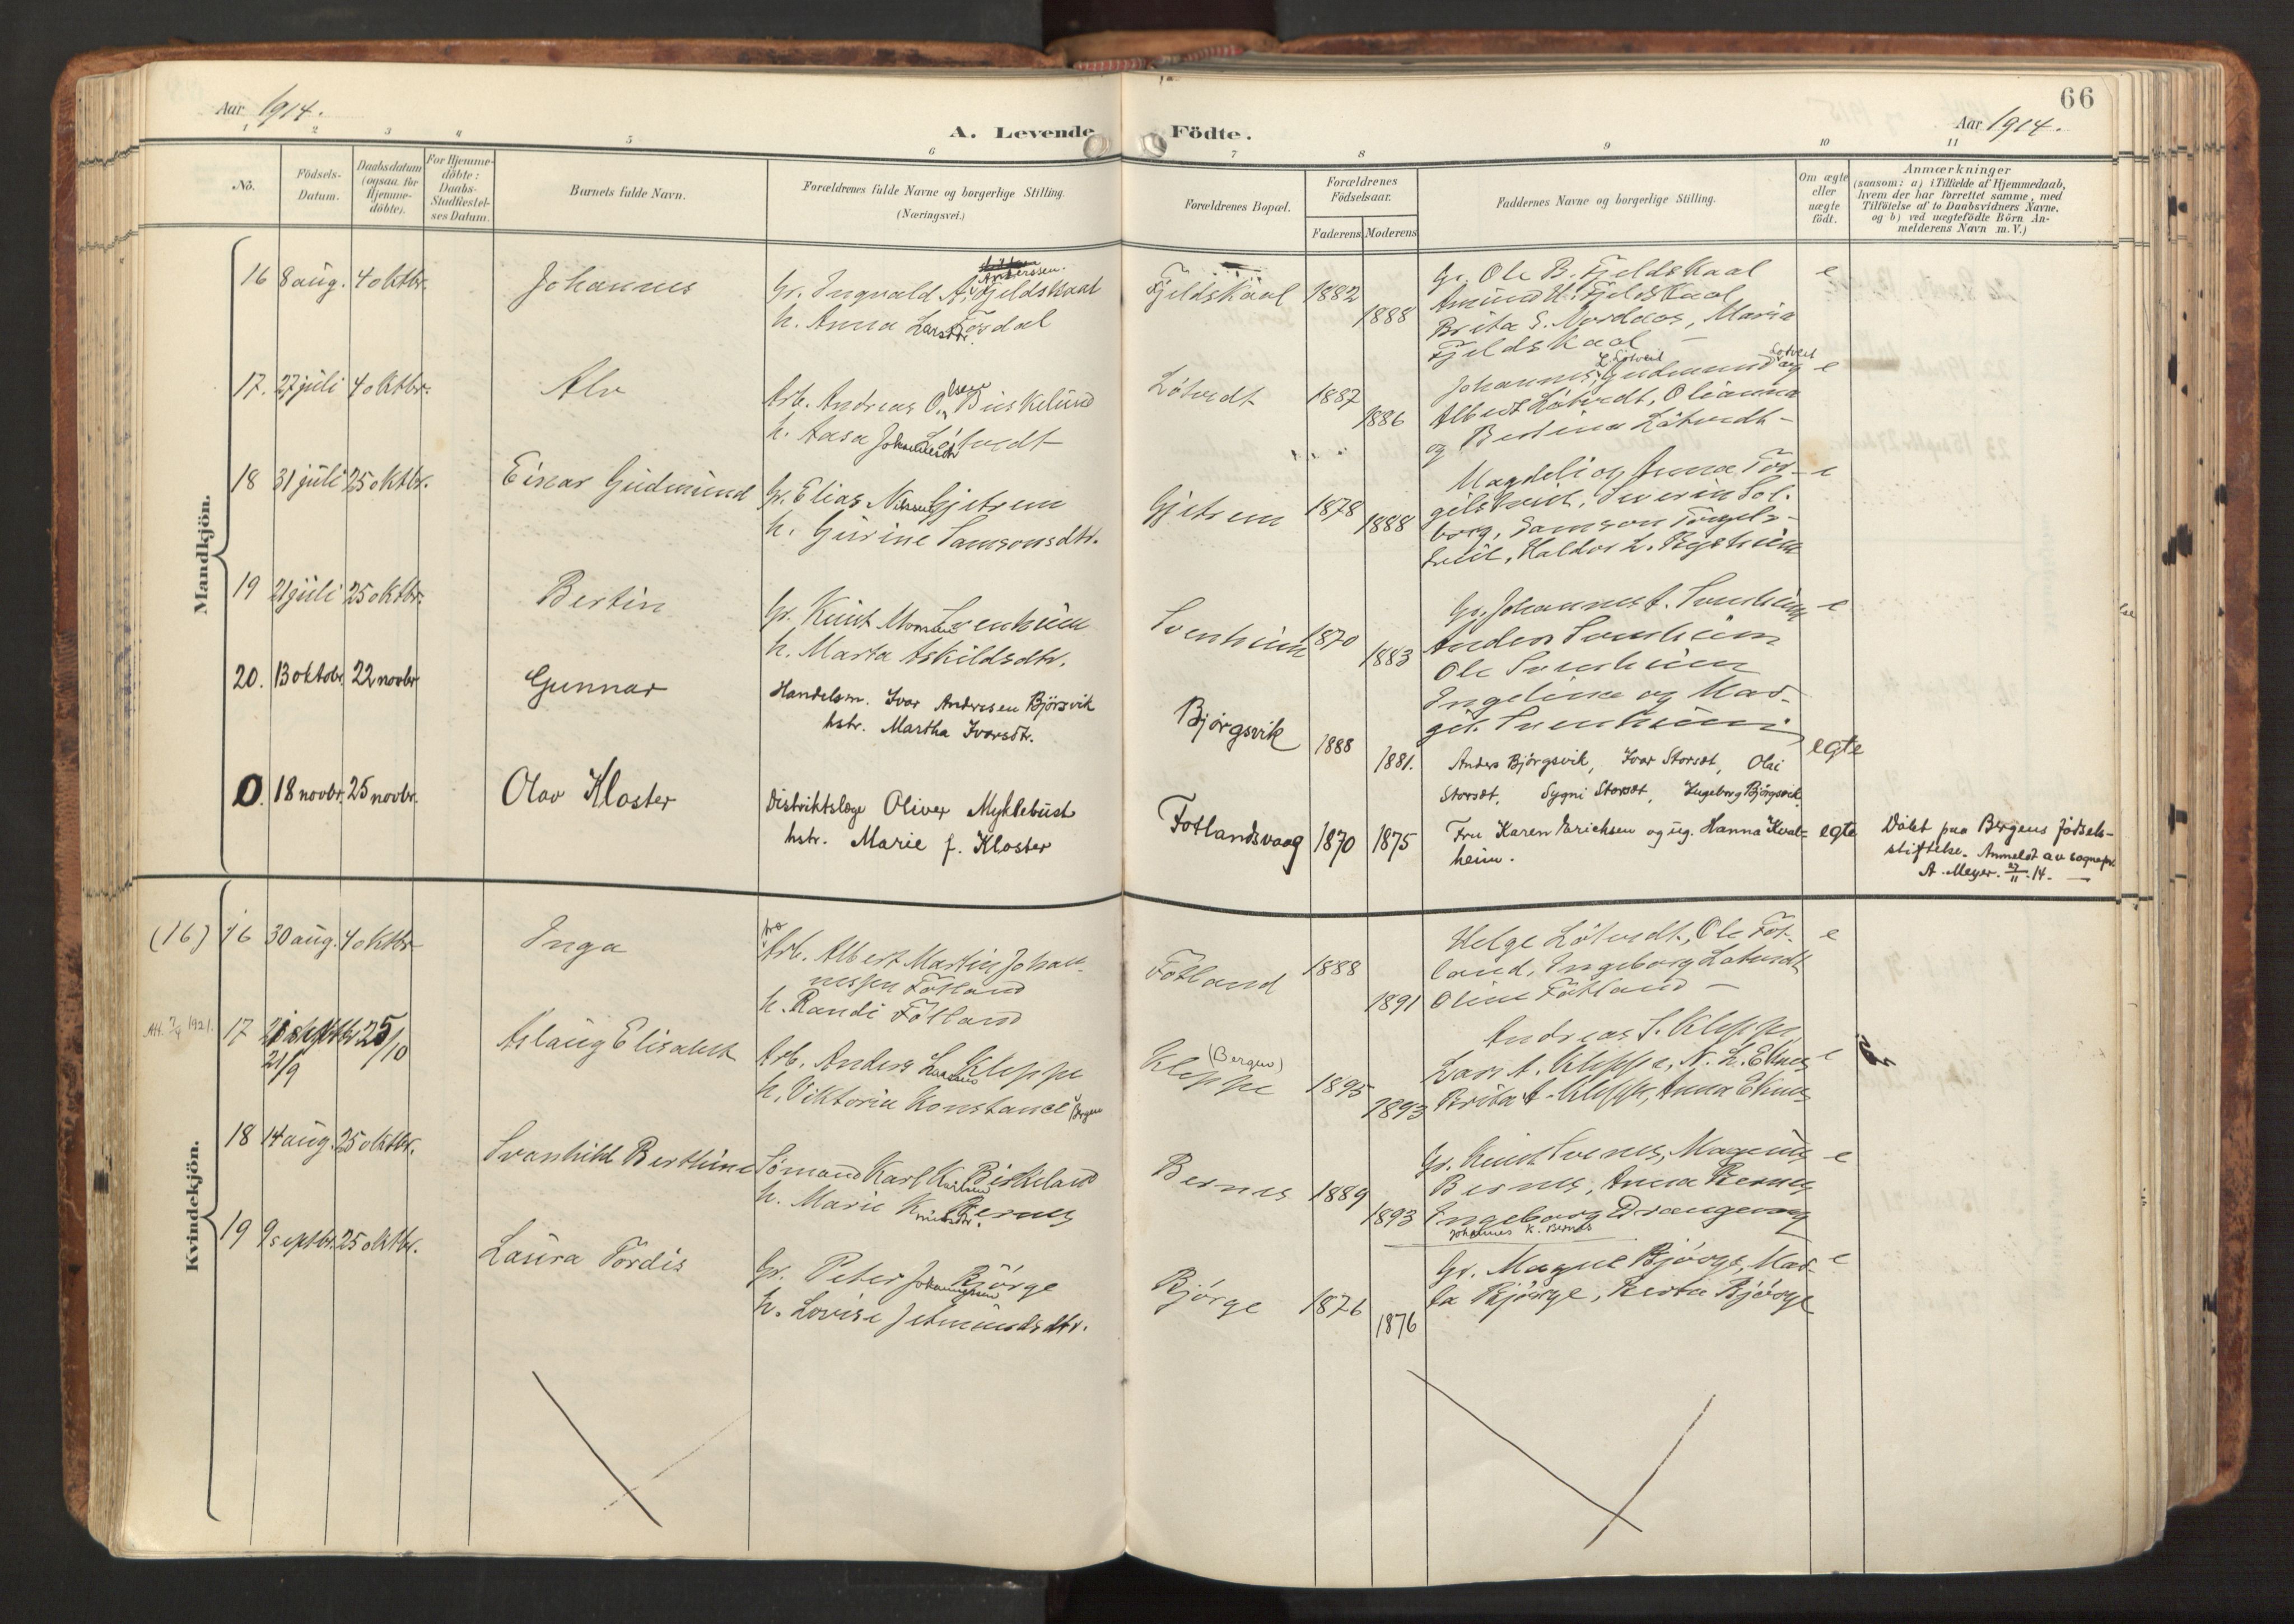 66
Aar 1914.
A. Levende Födte.
Aar 1914.
1 2 3 4 5 6 7 8 9 10 11
No.
Födsels-
Datum.
Daabsdatum
(ogsaa for
Hjemme-
döbte).
For Hjemme-
döbte:
Daabs-
Stadfæstel-
ses Datum.
Barnets fulde Navn.
Forældrenes fulde Navne og borgerlige Stilling.
(Næringsvei.)
Forældrenes Bopæl.
Forældrenes
Födselsaar.
Faderens Moderens
Faddernes Navne og borgerlige Stilling.
Om ægte
eller
uægte
födt.
Anmærkninger
(saasom: a) i Tilfælde af Hjemmedaab,
hvem der har forrettet samme, med
Tilföielse af to Daabsvidners Navne,
og b) ved uægtefödte Börn An-
melderens Navn m. V.)
Mandkjön.
16 8 aug. 4 oktbr. Johannes
Anderssen.
Gr. Ingvald A. Fjeldskaal
h. Anna Larsdtr. Tösdal
Fjeldskaal 1882 1888
Gr. Ole B. Fjeldskaal
Amund H. Fjeldskaal
Brita S. Nordaas, Maria
Fjeldskaal —
e
17. 27 juli 4 oktbr. Alv
Arb. Andreas Olsen Buskelund
h. Aasa Johannesdtr Lötvedt
Lötvedt 1887 1886
Johannes, Gudmund og
Albert Lötvedt, Olianna
og Bertina Lötvedt –
e
18 31 juli 25 oktbr. Einar Gudmund
Gr. Elias Nilssen Gjetrem
h. Gurine Samsonsdtr.
Gjetrem 1878 1888
Magdeli og Anna Tor-
gilstveit, Severin Sol-
borg, Samson Torgils-
tveit, Haldor L.
e
19 21 juli 25 oktbr. Bertin
Gr. Knut Monsen Svenheim
h. Marta Askildsdtr.
Svenheim 1870 1883
Gr. Johannes A. Svenheim
Anders Svenheim
Ole Svenheim
Ingeline og Mar-
git Svenheim
e
20. 13 oktobr. 22 novbr Gunnar
Handelsm. Ivar Andresen Björsvik
hstr. Martha Ivarsdtr.
Björgsvik 1888 1881.
Anders Björgsvik, Ivar Storsæt, Olai
Storsæt, Sygni Storsæt, Ingeborg Björgsvik.
egte
0. 18 novbr. 25 novbr. Olav Kloster
Distriktslæge Oliver Myklebust
hstr. Marie f. Kloster
Fotlandsvaag 1870 1875
Fru Karen Erichsen og ug. Hanna Kval=
heim.
egte
Döbt paa Bergens födsels-
stiftelse. Anmeldt av sognepr.
A. Meyer. 27/11.14. —
Kvindekjön.
(16) 16 30 aug. 4 oktbr Inga
Arb. Albert Martin Johan-
nessen Fotland
h. Randi Fotland
Fotland 1888 1891
Helge Lötvedt, Ole Fot-
land, Ingeborg Lötvedt
Oline Fotland —
e
Att. 7/9 1921. 17 21/9 25/10 Aslaug Elisabeth
Arb. Anders Larsens Kleppe
h. Viktoria Konstance (Bergen
(Bergen)
Kleppe 1895 1893
Andreas S. Kleppe
Lars A. Kleppe, N. L. Eknes
Brita A. Kleppe, Anna Eknes
e
18 14 aug. 25 oktbr. Svanhild Berthine
Sömand Karl Karlsen Birkeland
h. Marie Knutsdtr. Bernes
Bernes 1889 1893
Gr. Knut Svenes, Magnus
Bernes, Anna Bernes
Ingeborg Drangevaag
Johannes K. Bernes
e
19 9 septbr. 25 oktbr. Laura Tordis
Gr. Peter Johannessen Björge
h. Lovise Jetmundsdtr.
Björge 1876 1876
Gr. Magne Björge, Mar-
ta Björge, Berta Björge
e